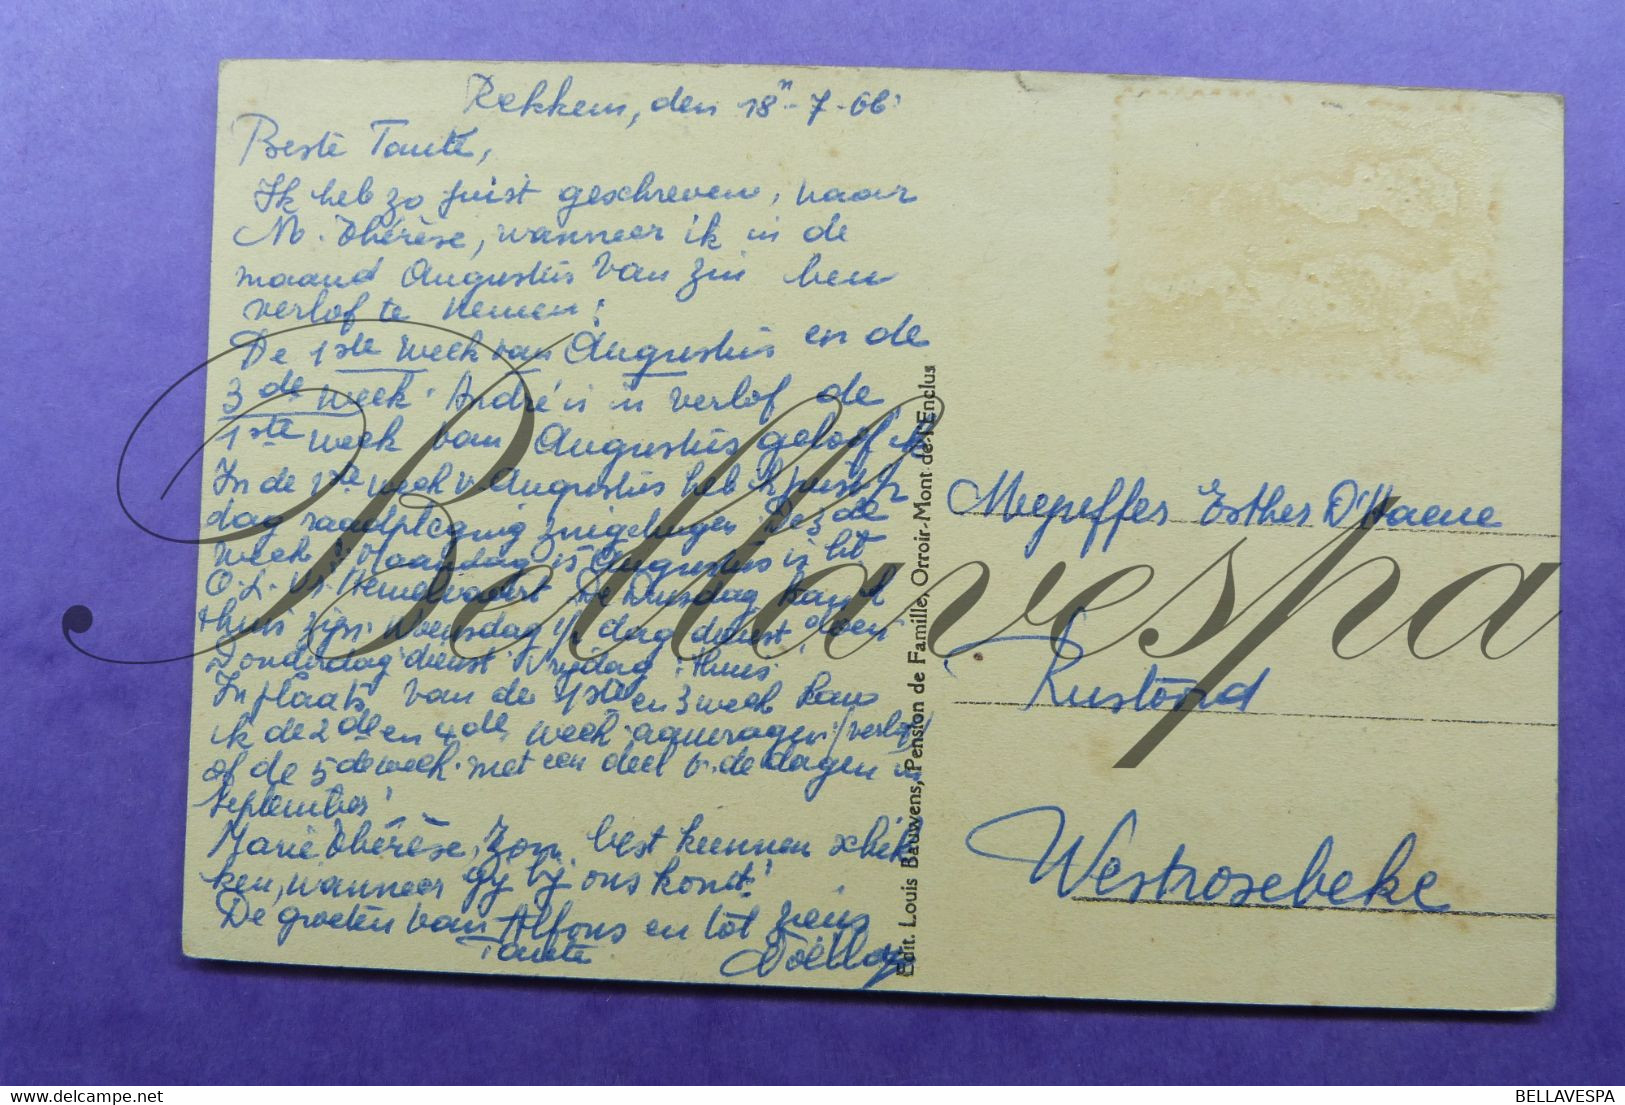 Rekkem, den 18n-7-66
Beste Tante,
Ik heb zo juist geschreven, naar
M. Thérèse, wanneer ik in de
maand Augustus van zin ben
verlof te nemen:
De 1ste week van Augustus en de
3de week. André is in verlof de
1ste week van Augustus geloof ik
In de 1ste week v. Augustus heb ik juist 1/2
dag raadpleging zuigelingen. De 3de
week: Maandag 15 Augustus is het
O.L.Vr. Hemelvaart. De Dinsdag kan ik
thuis zijn. Woensdag 1/2 dag dienst doen
Donderdag dienst. Vrijdag: thuis.
In plaats van de 1ste en 3 week kan
ik de 2de en 4de week aanvragen (verlof)
of de 5de week met een deel v. de dagen in
September!
Marie Thérèse, zou best kunnen schik-
ken, wanneer gij bij ons komt!
De groeten van Alfons en tot ziens
Tante
Edit. Louis Bauwens, Pension de Famille, Orroir-Mont de l'Enclus
Mejuffer Esther D'Haene
Rustoord
Westrosebeke
Bellavespa
BELLAVESPA
delcampe.net